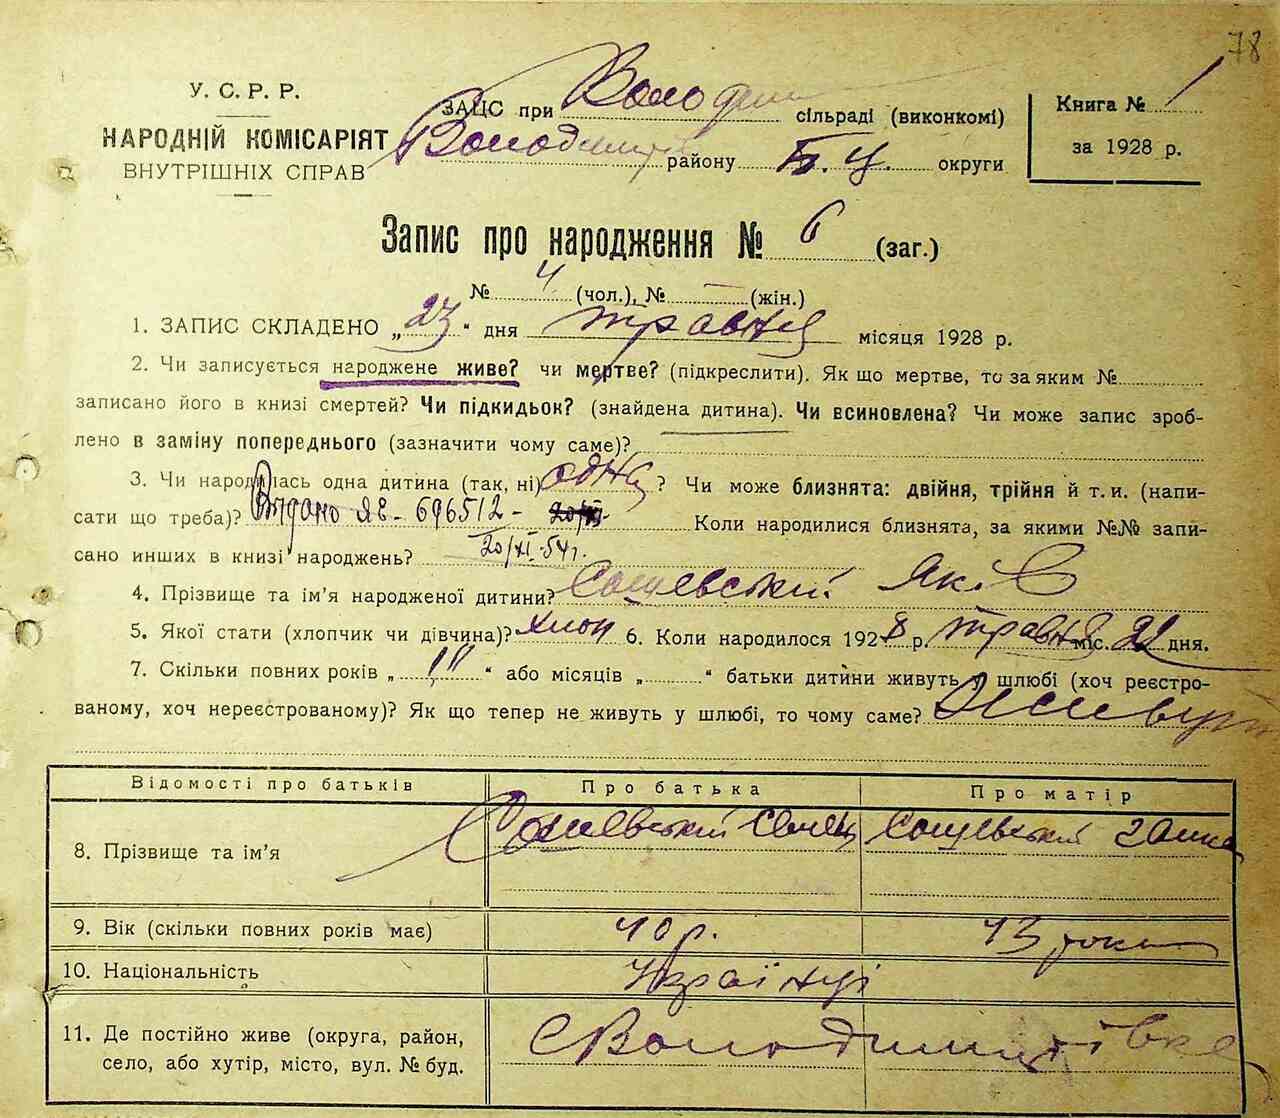 78
У. С. Р. Р.
НАРОДНІЙ КОМІСАРІЯТ
ВНУТРІШНІХ СПРАВ
ЗАЦС при сільраді (виконкомі)
району Б. Ц. округи
Книга № 1
за 1928 р.
Запис про народження № 6 (заг.)
№ 4 (чол.), № (жін.)
1. ЗАПИС СКЛАДЕНО „23“ дня травня місяця 1928 р.
2. Чи записується народжене живе? чи мертве? (підкреслити). Як що мертве, то за яким №
записано його в книзі смертей? Чи підкидьок? (знайдена дитина). Чи всиновлена? Чи може запис зроб-
лено в заміну попереднього (зазначити чому саме)?
3. Чи народилась одна дитина (так, ні) одна ? Чи може близнята: двійня, трійня й т. и. (напи-
сати що треба)? Видано ЯЕ - 696512 - 20/XI Коли народилися близнята, за якими №№ запи-
сано инших в книзі народжень? 20/XI-54 г.
4. Прізвище та ім’я народженої дитини? Яків
5. Якої стати (хлопчик чи дівчина)? хлоп 6. Коли народилося 1928 р. травня міс. 22 дня.
7. Скільки повних років „ “ або місяців „ “ батьки дитини живуть у шлюбі (хоч реєстро-
ваному, хоч нереєстрованому)? Як що тепер не живуть у шлюбі, то чому саме? Живуть
Відомості про батьків Про батька Про матір
8. Прізвище та ім’я
9. Вік (скільки повних років має) 40 р. 43 роки
10. Національність Українці
11. Де постійно живе (округа, район,
село, або хутір, місто, вул. № буд.